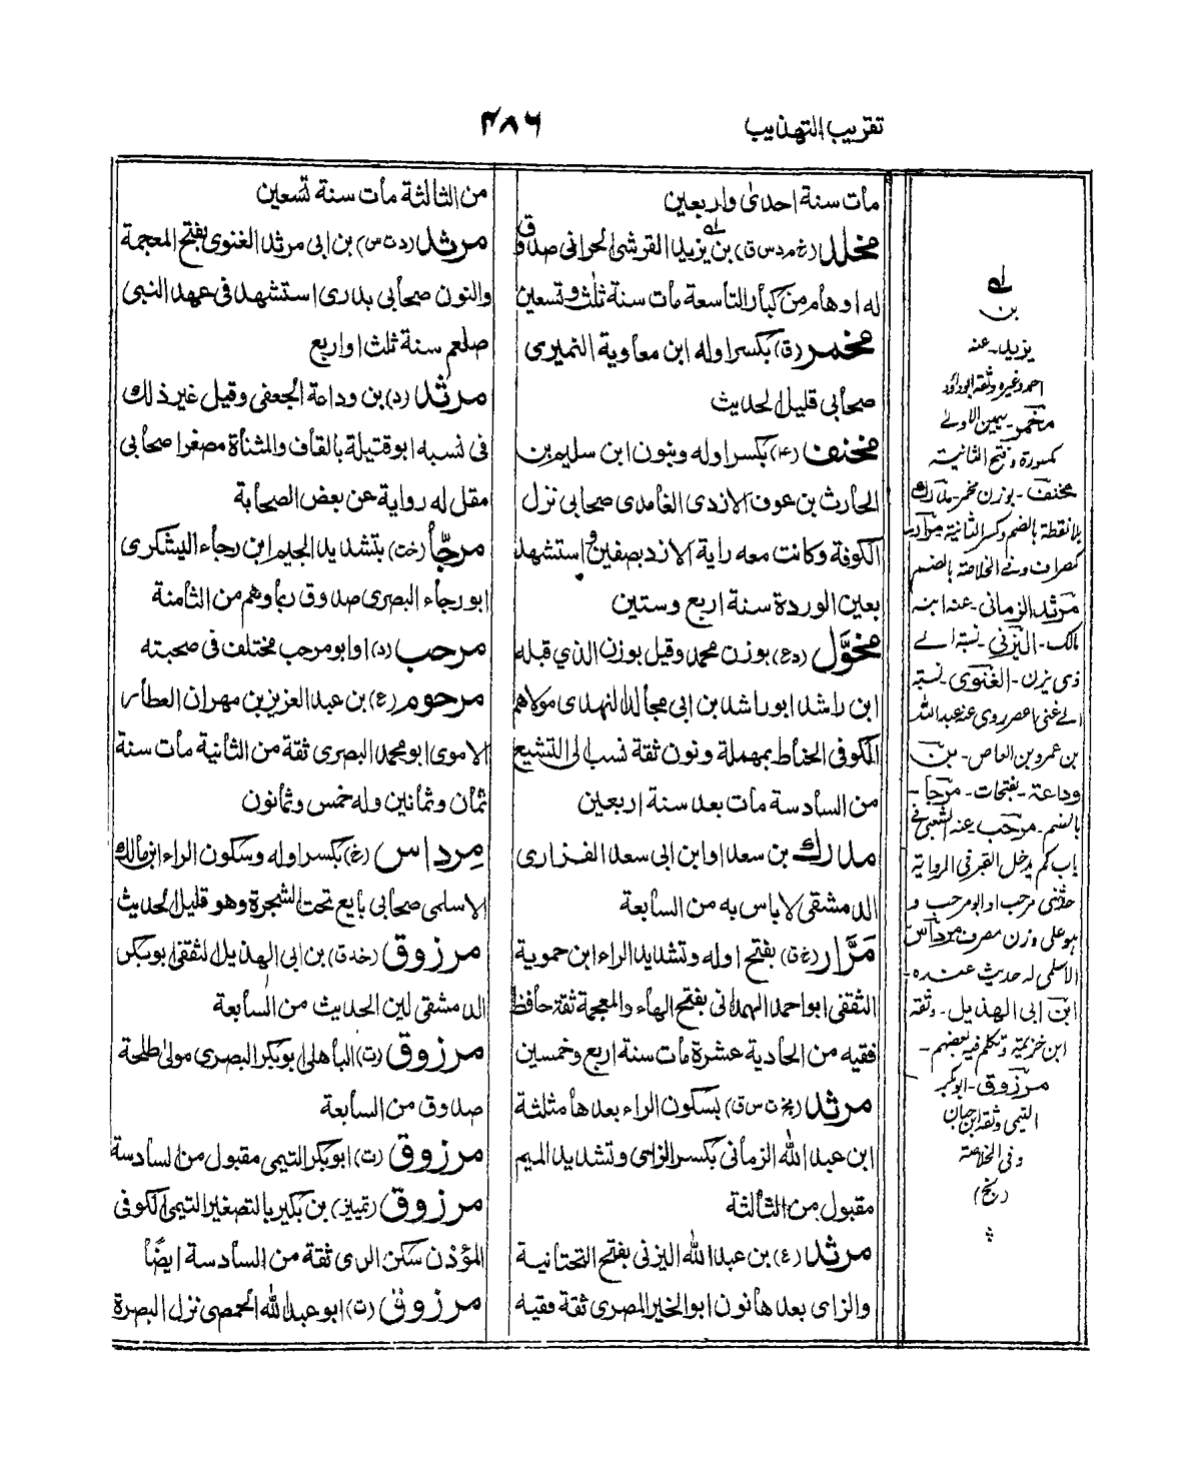 تقریب التہذیب
۴۸۶
مات سنة احدى واربعين
مخلد (خ م د س ق) بن يزيد القرشى الحرانى صدوق
له اوهام من كبار التاسعة مات سنة ثلث وتسعين
مخمر (ق) بكسر اوله ابن معاوية النميرى
صحابى قليل الحديث
مخنف (۴) بكسر اوله وبنون ابن سليم بن
الحارث بن عوف الازدى الغامدى صحابى نزل
الكوفة وكانت معه راية الازد بصفين واستشهد
بعين الوردة سنة اربع وستين
مخوَّل (ع) بوزن محمد وقيل بوزن الذي قبله
ابن راشد ابو راشد بن ابى مجالد النهدى مولاهم
الكوفى الحناط بمهملة ونون ثقة نسب الى التشيع
من السادسة مات بعد سنة اربعين
مدرك بن سعد او ابن ابى سعد الفزارى
الدمشقى لا باس به من السابعة
مَرَّار (خ ق) بفتح اوله وتشديد الراء ابن حموية
الثقفى ابو احمد الهمدانى بفتح الهاء والمعجمة ثقة حافظ
فقيه من الحادية عشرة مات سنة اربع وخمسين
مرثد (بخ ت س ق) بسكون الراء بعدها مثلثة
ابن عبد الله الزمانى بكسر الزاى وتشديد الميم
مقبول من الثالثة
مرثد (ع) بن عبد الله اليزنى بفتح التحتانية
والزاى بعدها نون ابو الخير المصرى ثقة فقيه
من الثالثة مات سنة تسعين
مرثد (د ت س) بن ابى مرثد الغنوى بفتح المعجمة
والنون صحابى بدرى استشهد فى عهد النبى
صلعم سنة ثلث او اربع
مرثد (د) بن وداعة الجعفى وقيل غير ذلك
فى نسبه ابو قتيلة بالقاف والمثناة مصغرا صحابى
مقل له رواية عن بعض الصحابة
مرجّأ (خت) بتشديد الجيم ابن رجاء اليشكرى
ابو رجاء البصرى صدوق ربما وهم من الثامنة
مرحب (د) او ابو مرحب مختلف فى صحبته
مرحوم (ع) بن عبد العزيز بن مهران العطار
الاموى ابو محمد البصرى ثقة من الثانية مات سنة
ثمان وثمانين وله خمس وثمانون
مِرداس (خ) بكسر اوله وسكون الراء ابن مالك
الاسلمى صحابى بايع تحت الشجرة وهو قليل الحديث
مرزوق (خد ق) بن ابى الهذيل الثقفى ابو بكر
الدمشقى لين الحديث من السابعة
مرزوق (ت) الباهلى ابو بكر البصرى مولى طلحة
صدوق من السابعة
مرزوق (ت) ابو بكر التيمى مقبول من السادسة
مرزوق (تمييز) بن بكير بالتصغير التيمى الكوفى
المؤذن سكن الرى ثقة من السادسة ايضًا
مرزوق (ت) ابو عبد الله الحمصى نزل البصرة
له
بن
يزيد - عنه
احمد وغيره وثقه ابو داؤد
مخمر - بميمين الاولى
كمسورة وفتح الثانية
مخنف - بوزن مخمر - مدرك
بلا نقطة بالضم وكسر الثانية مرار
كصراف وفى الخلاصة بالضم
مرثد الزمانى - عنه ابنه
مالك - اليزنى - نسبة الى
ذى يزن - الغنوى - نسبة
الى غنى اعصر روى عنه عبد الله
بن عمرو بن العاص - بن
وداعة - بفتحات - مرجا -
بالضم - مرحب عنه الشعبى فى
باب كم يدخل القبر فى الرواية
حدثنى مرحب او ابو مرحب و
ہو على وزن مصرف مرداس
الاسلمى له حديث عنده -
ابن ابى الهذيل - وثقه
ابن خزيمة وتكلم فيه بعضهم -
مرزوق - ابو بكر
التيمى وثقه ابن حبان
وفى الخلاصة